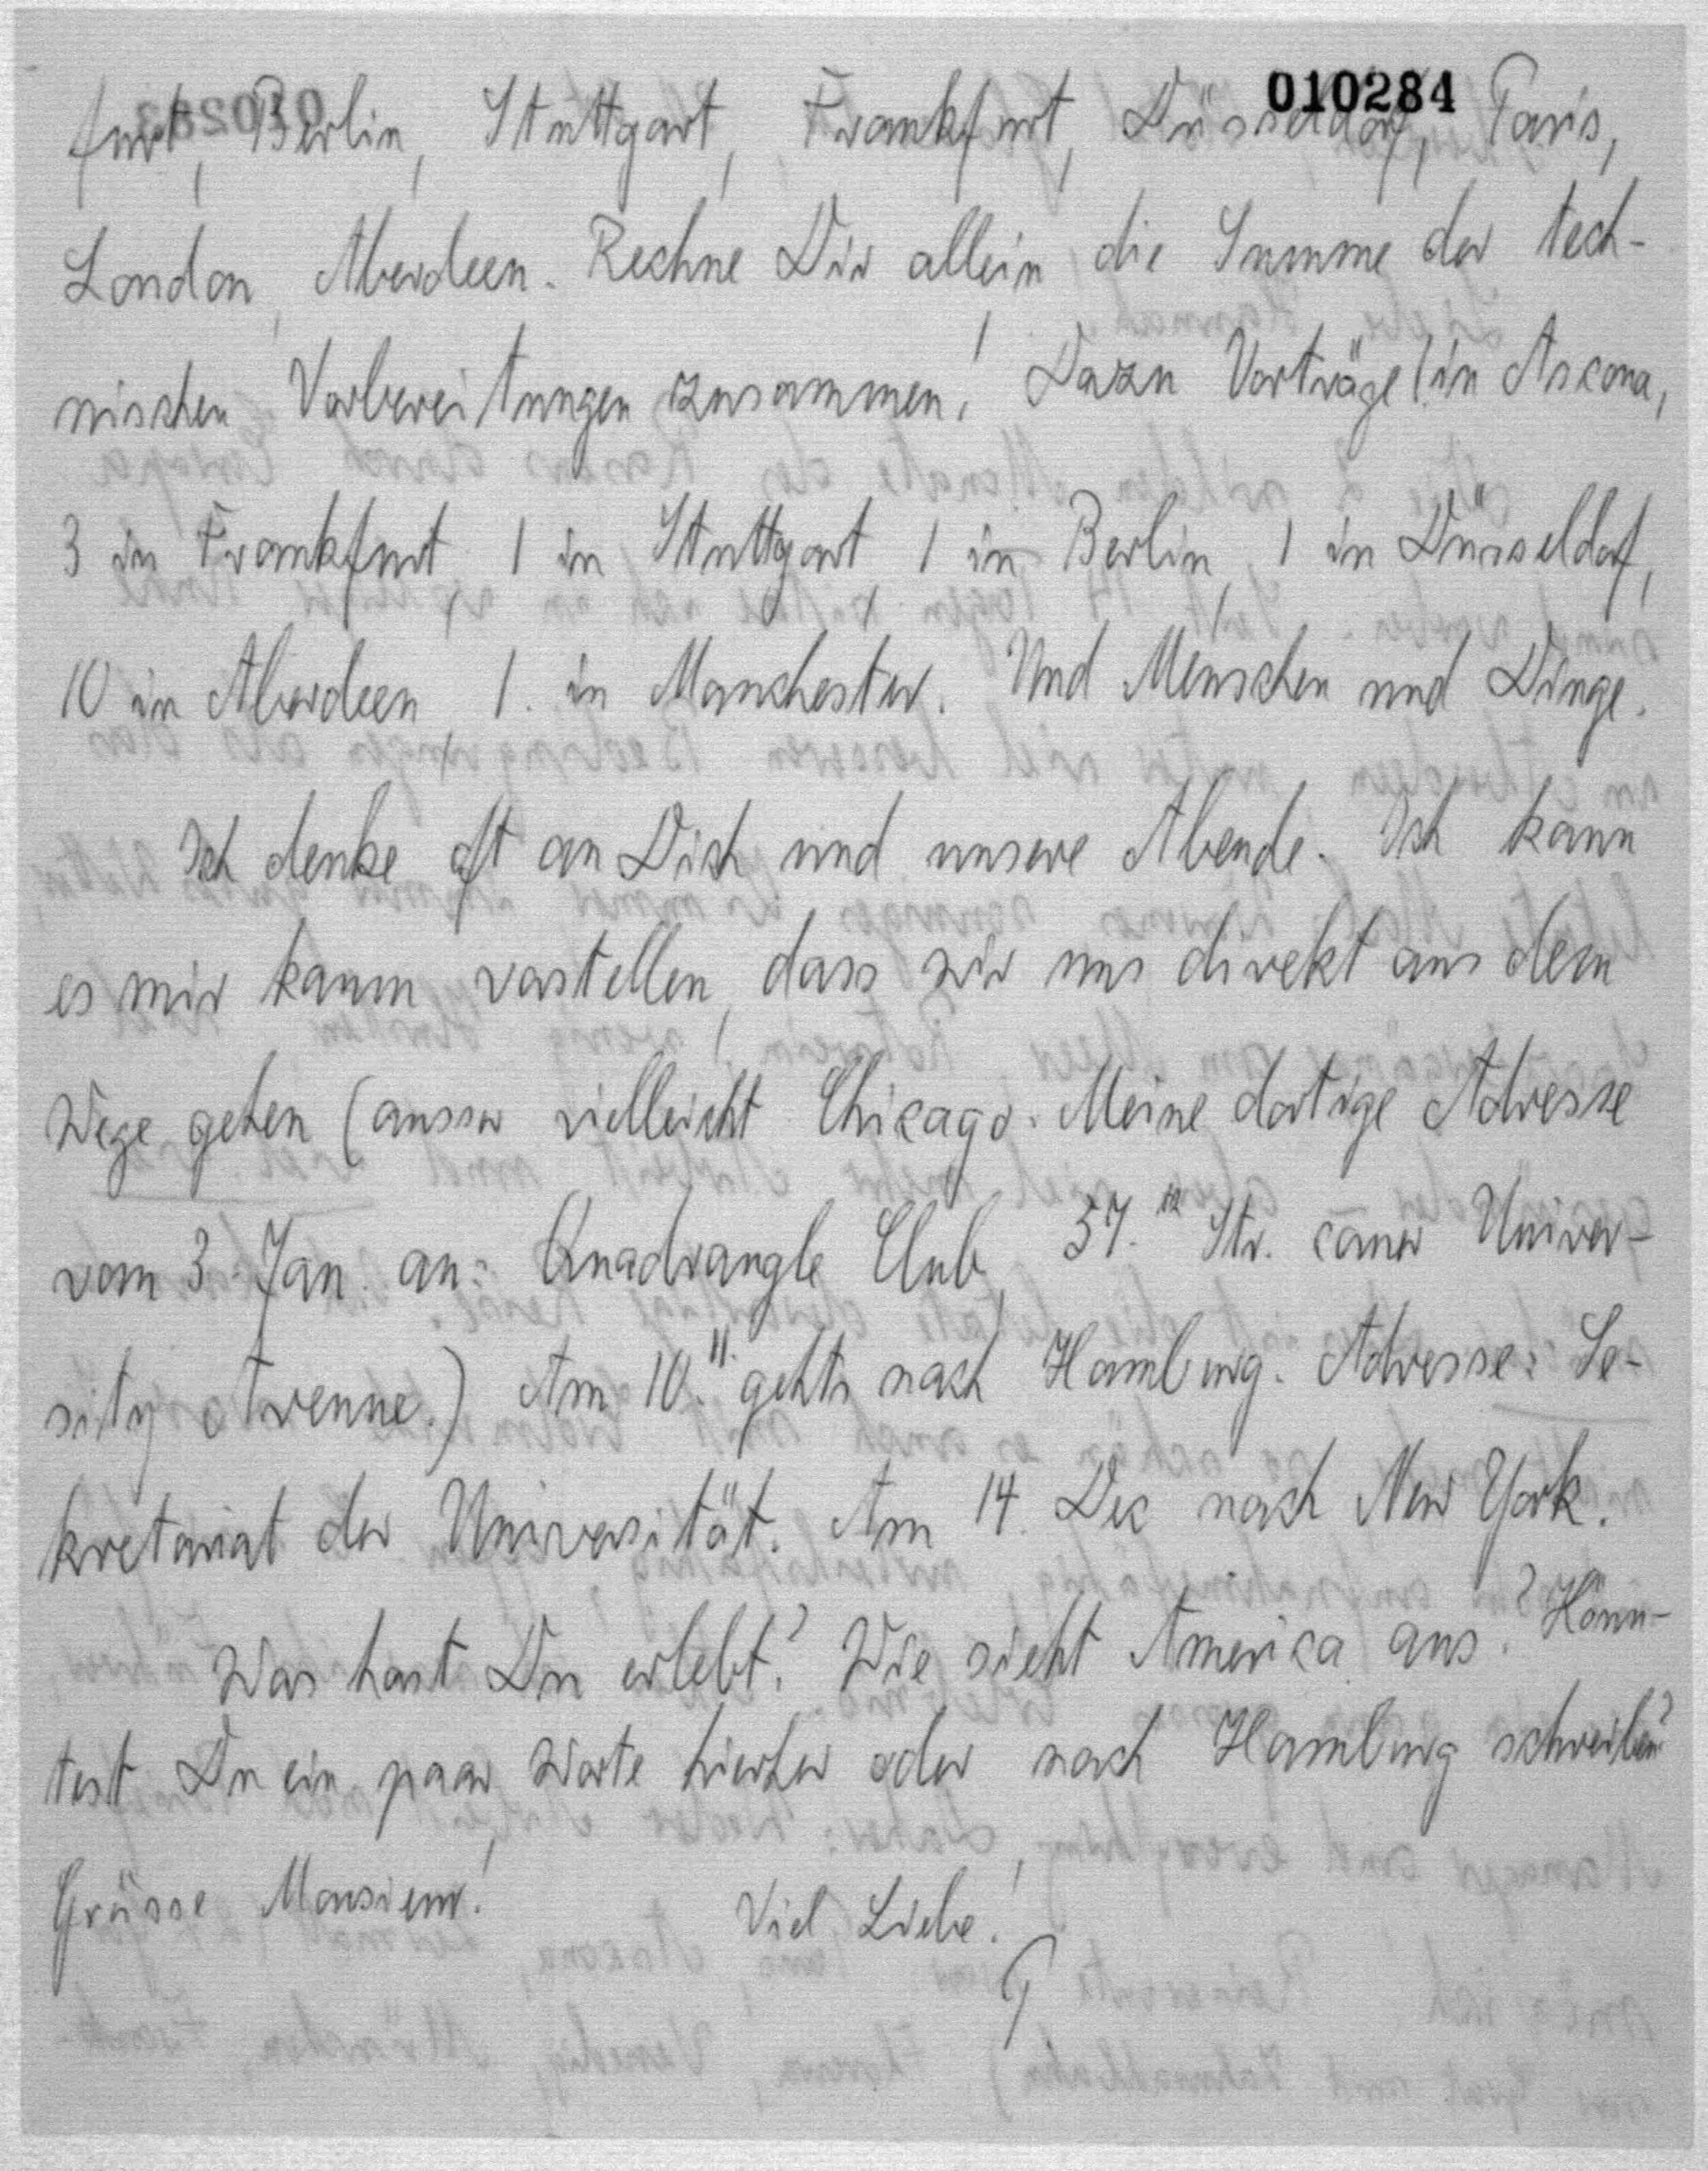 010284
furt, Berlin, Stuttgart, Frankfurt, Düsseldorf, Paris,
London, Aberdeen. Rechne Dir allein die Summe der tech-
nischen Vorbereitungen zusammen! Dazu Vorträge! in Ascona,
3 in Frankfurt, 1 in Stuttgart, 1 in Berlin, 1 in Düsseldorf,
10 in Aberdeen, 1. in Manchester. Und Menschen und Dinge.
Ich denke oft an Dich und unsere Abende. Ich kann
es mir kaum vorstellen, dass wir uns direkt aus dem
Wege gehen (ausser vielleicht Chicago. Meine dortige Adresse
vom 3. Jan. an: Quadrangle Club, 57. Str. corner Univer-
sity Avenue.) Am 10. gehts nach Hamburg. Adresse: Se-
kretariat der Universität. Am 14. Dec nach New York.
Was hast Du erlebt? Wie sieht America aus? Könn-
test Du ein paar Worte hierher oder nach Hamburg schreiben?
Grüsse Monsieur! Viel Liebe!
P